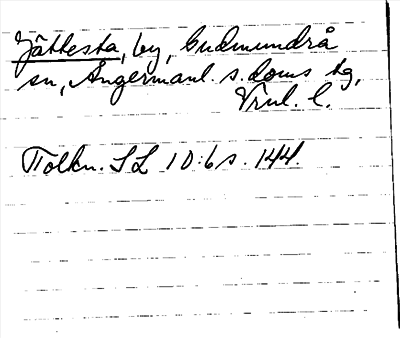 Jättesta, by, Gudmundrå
sn, Ångermanl. s. doms tg,
Vnl. l.
Tolkn. SL 10:6 s. 144.